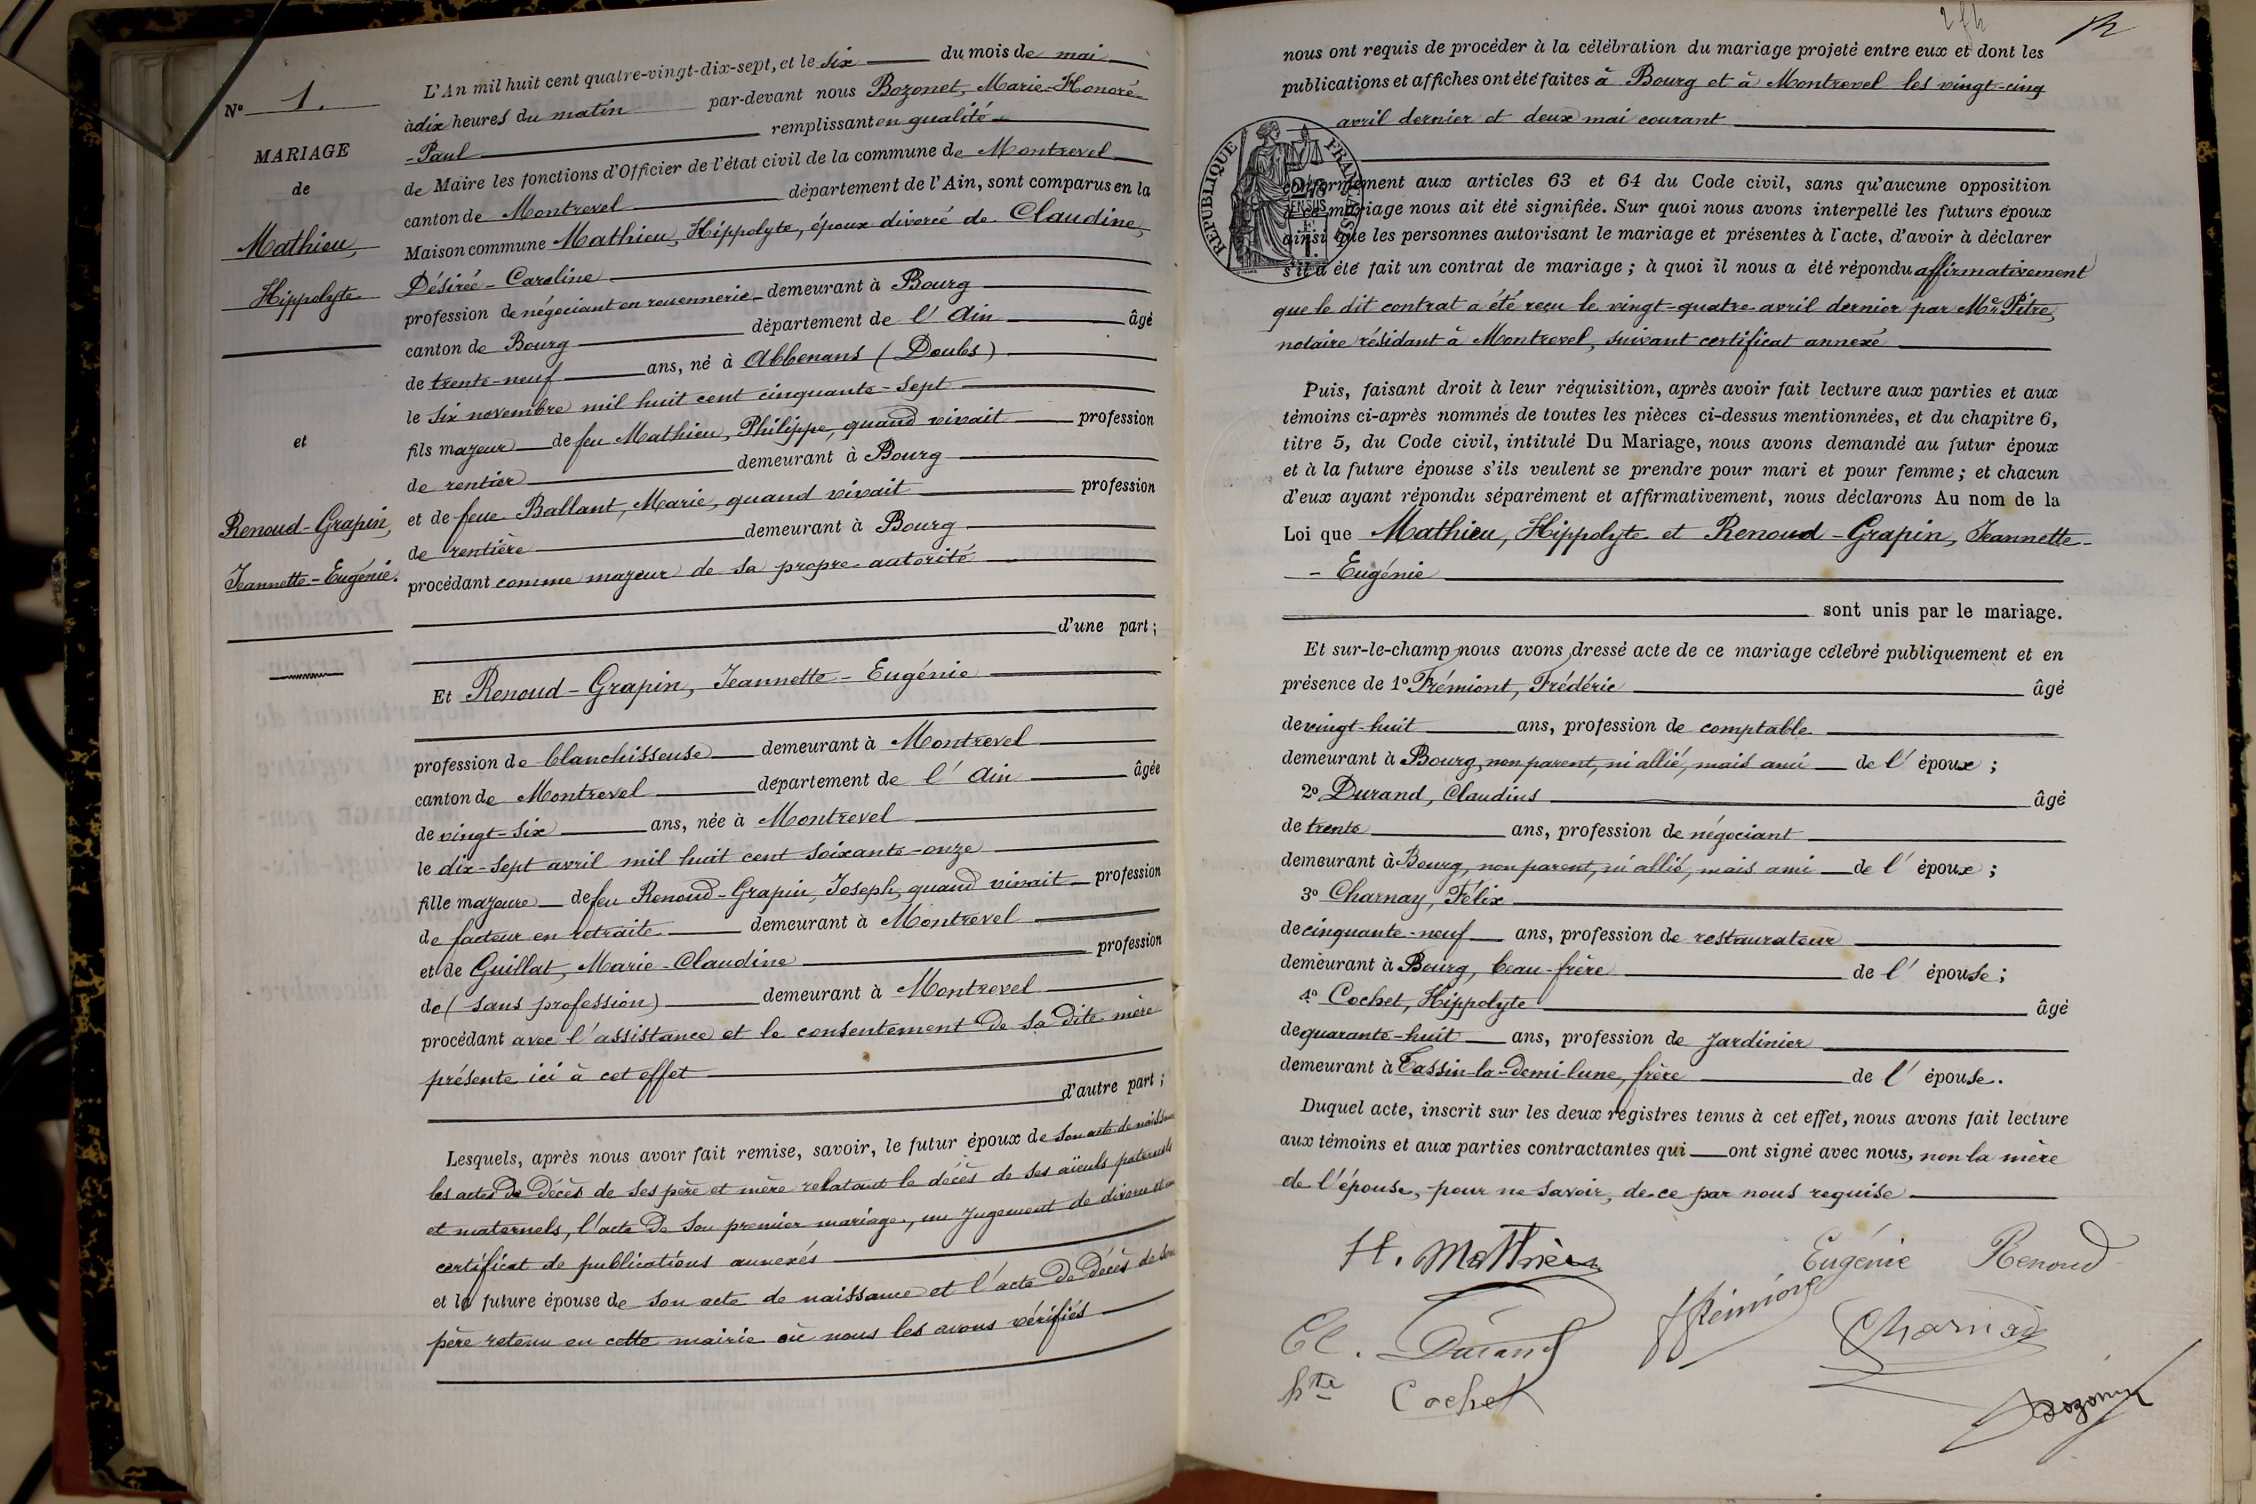 N° 1.
MARIAGE
de
Mathieu,
Hippolyte
et
Renoud-Grapin,
Jeannette-Eugénie.
L'An mil huit cent quatre-vingt-dix-sept, et le six du mois de mai
à dix heures du matin par-devant nous Bozonet, Marie-Honoré-
-Paul remplissant en qualité
de Maire les fonctions d'Officier de l'état civil de la commune de Montrevel
canton de Montrevel département de l'Ain, sont comparus en la
Maison commune Mathieu, Hippolyte, époux divorcé de Claudine,
Désirée-Caroline
profession de négociant en rouennerie demeurant à Bourg
canton de Bourg département de l'Ain âgé
de trente-neuf ans, né à Abbenans (Doubs)
le six novembre mil huit cent cinquante-sept
fils majeur de feu Mathieu, Philippe, quand vivait profession
de rentier demeurant à Bourg
et de feue Ballant, Marie, quand vivait profession
de rentière demeurant à Bourg
procédant comme majeur de sa propre autorité
d'une part;
Et Renoud-Grapin, Jeannette-Eugénie
profession de blanchisseuse demeurant à Montrevel
canton de Montrevel département de l'Ain âgée
de vingt-six ans, née à Montrevel
le dix-sept avril mil huit cent soixante-onze
fille majeure de feu Renoud-Grapin, Joseph, quand vivait profession
de facteur en retraite demeurant à Montrevel
et de Guillat, Marie-Claudine profession
de (sans profession) demeurant à Montrevel
procédant avec l'assistance et le consentement de sa dite mère
présente ici à cet effet
d'autre part;
Lesquels, après nous avoir fait remise, savoir, le futur époux de son acte de naissance
les actes de décès de ses père et mère relatant le décès de ses aïeuls paternels
et maternels, l'acte de son premier mariage, un jugement de divorce et un
certificat de publications annexés
et la future épouse de son acte de naissance et l'acte de décès de son
père retenu en cette mairie où nous les avons vérifiés
nous ont requis de procéder à la célébration du mariage projeté entre eux et dont les
publications et affiches ont été faites à Bourg et à Montrevel les vingt-cinq
avril dernier et deux mai courant
RÉPUBLIQUE FRANÇAISE
conformément aux articles 63 et 64 du Code civil, sans qu'aucune opposition
à ce mariage nous ait été signifiée. Sur quoi nous avons interpellé les futurs époux
ainsi que les personnes autorisant le mariage et présentes à l'acte, d'avoir à déclarer
s'il a été fait un contrat de mariage; à quoi il nous a été répondu affirmativement
que le dit contrat a été reçu le vingt-quatre avril dernier par Me Pitre,
notaire résidant à Montrevel, suivant certificat annexé
Puis, faisant droit à leur réquisition, après avoir fait lecture aux parties et aux
témoins ci-après nommés de toutes les pièces ci-dessus mentionnées, et du chapitre 6,
titre 5, du Code civil, intitulé Du Mariage, nous avons demandé au futur époux
et à la future épouse s'ils veulent se prendre pour mari et pour femme; et chacun
d'eux ayant répondu séparément et affirmativement, nous déclarons Au nom de la
Loi que Mathieu, Hippolyte et Renoud-Grapin, Jeannette-
-Eugénie
sont unis par le mariage.
Et sur-le-champ nous avons dressé acte de ce mariage célébré publiquement et en
présence de 1° Frémiont, Frédéric âgé
de vingt-huit ans, profession de comptable
demeurant à Bourg, non parent, ni allié, mais ami de l'époux;
2° Durand, Claudius âgé
de trente ans, profession de négociant
demeurant à Bourg, non parent, ni allié, mais ami de l'époux;
3° Charnay, Félix
de cinquante-neuf ans, profession de restaurateur
demeurant à Bourg, beau-frère de l'épouse;
4° Cochet, Hippolyte âgé
de quarante-huit ans, profession de jardinier
demeurant à Tassin-la-demi-lune, frère de l'épouse.
Duquel acte, inscrit sur les deux registres tenus à cet effet, nous avons fait lecture
aux témoins et aux parties contractantes qui ont signé avec nous, non la mère
de l'épouse, pour ne savoir, de ce par nous requise
H. Matthieu
Eugénie Renoud
Cl. Durand
Frémiont
Charnay
hte Cochet
Bozonet